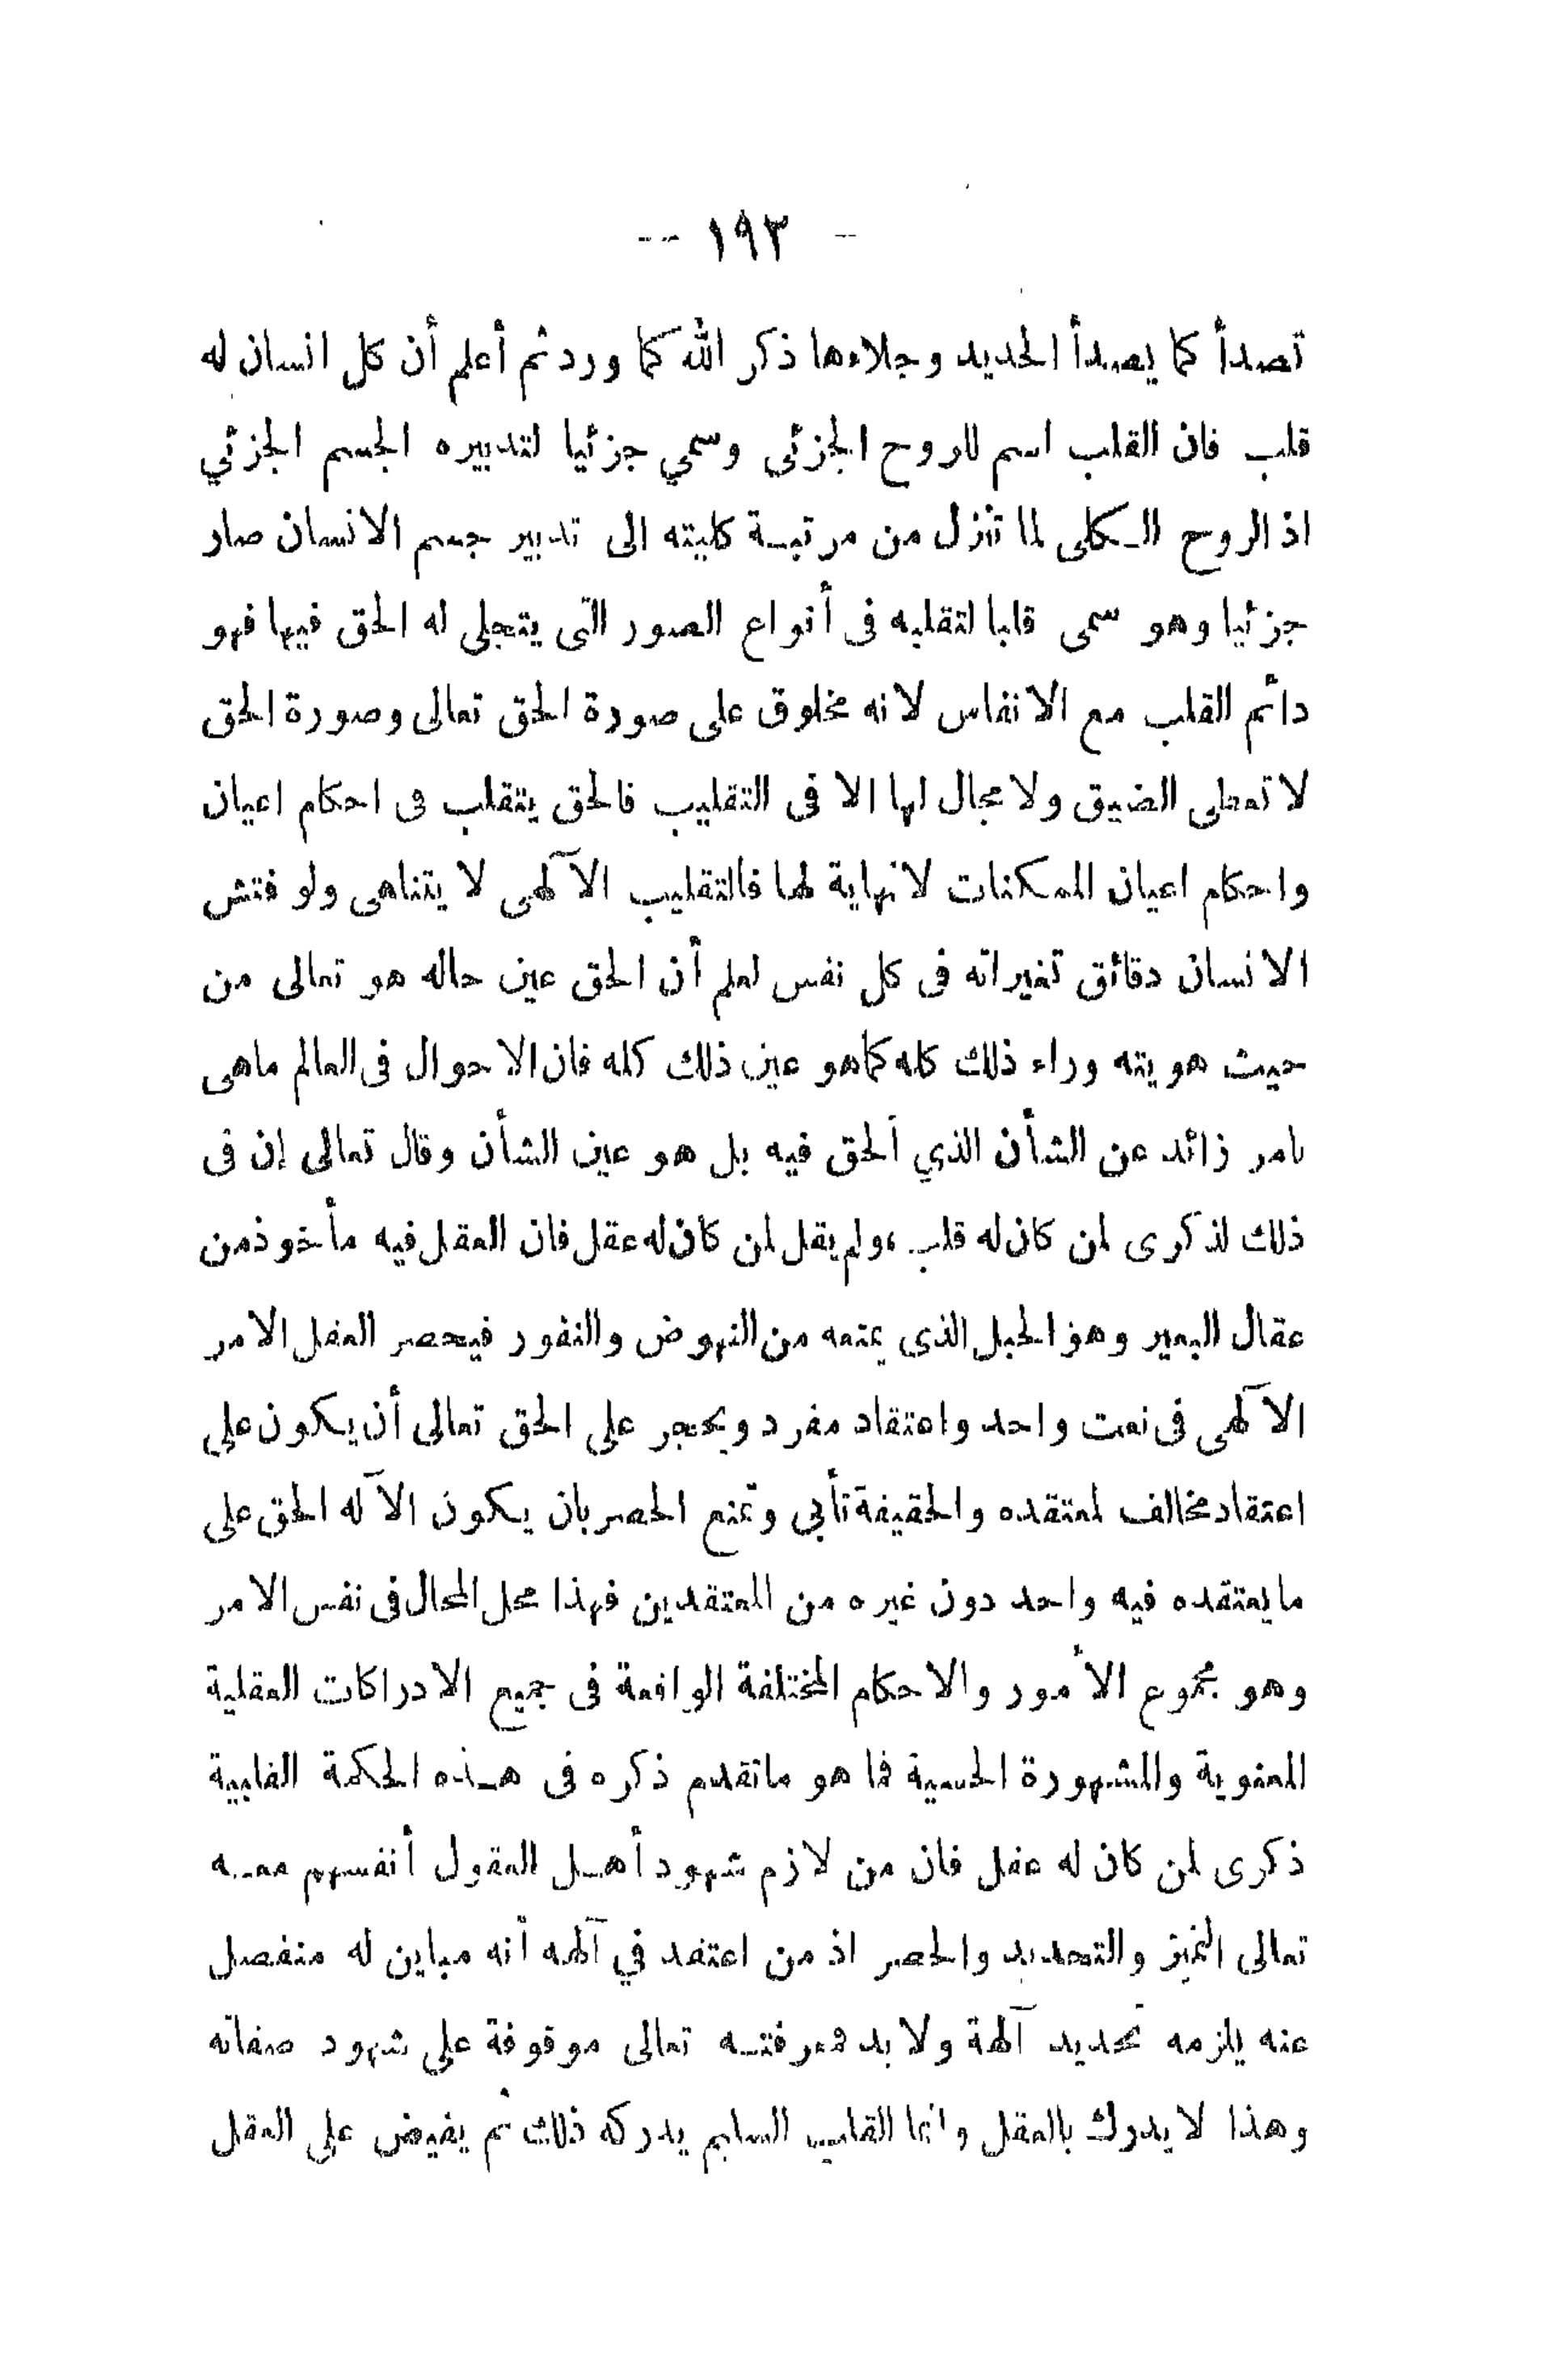 - ١٩٣ --
تصدأ كما يصدأ الحديد وجلاءها ذكر الله كما ورد ثم أعلم أن كل انسان له
قلب فان القلب اسم للروح الجزئى وسمي جزئيا لتدبيره الجسم الجزئي
اذ الروح الكلى لما تنزل من مرتبة كليته الى تدبير جسم الانسان صار
جزئيا وهو سمى قلبا لتقلبه فى أنواع الصور التى يتجلى له الحق فيها فهو
دائم القلب مع الانفاس لانه مخلوق على صورة الحق تعالى وصورة الحق
لا تعطى الضيق ولا مجال لها الا فى التقليب فالحق يتقلب فى احكام اعيان
واحكام اعيان الممكنات لا نهاية لها فالتقليب الآلهى لا يتناهى ولو فتش
الانسان دقائق تغيراته فى كل نفس لعلم أن الحق عين حاله هو تعالى من
حيث هويته وراء ذلك كله كما هو عين ذلك كله فان الاحوال فى العالم ماهى
بامر زائد عن الشأن الذي الحق فيه بل هو عين الشأن وقال تعالى إن فى
ذلك لذكرى لمن كان له قلب، ولم يقل لمن كان له عقل فان العقل فيه مأخوذ من
عقال البعير وهو الحبل الذى يمنعه من النهوض والنفور فيحصر العقل الامر
الآلهى فى نعت واحد واعتقاد مفرد ويحجر على الحق تعالى أن يكون على
اعتقاد مخالف لمعتقده والحقيقة تأبى وتمنع الحصر بان يكون الآله الحق على
ما يعتقده فيه واحد دون غيره من المعتقدين فهذا محل المحال فى نفس الامر
وهو مجموع الأمور والاحكام المختلفة الواقعة فى جميع الادراكات العقلية
المعنوية والمشهورة الحسية فما هو ماتقدم ذكره فى هذه الحكمة القلبية
ذكرى لمن كان له عقل فان من لازم شهود أهل العقول أنفسهم معه
تعالى التميز والتحديد والحصر اذ من اعتقد في آلهه أنه مباين له منفصل
عنه يلزمه تحديد آلهة ولا بد فمعرفته تعالى موقوفة على شهود صفاته
وهذا لا يدرك بالعقل وانما القلب السليم يدركه ذلك ثم يفيض على العقل